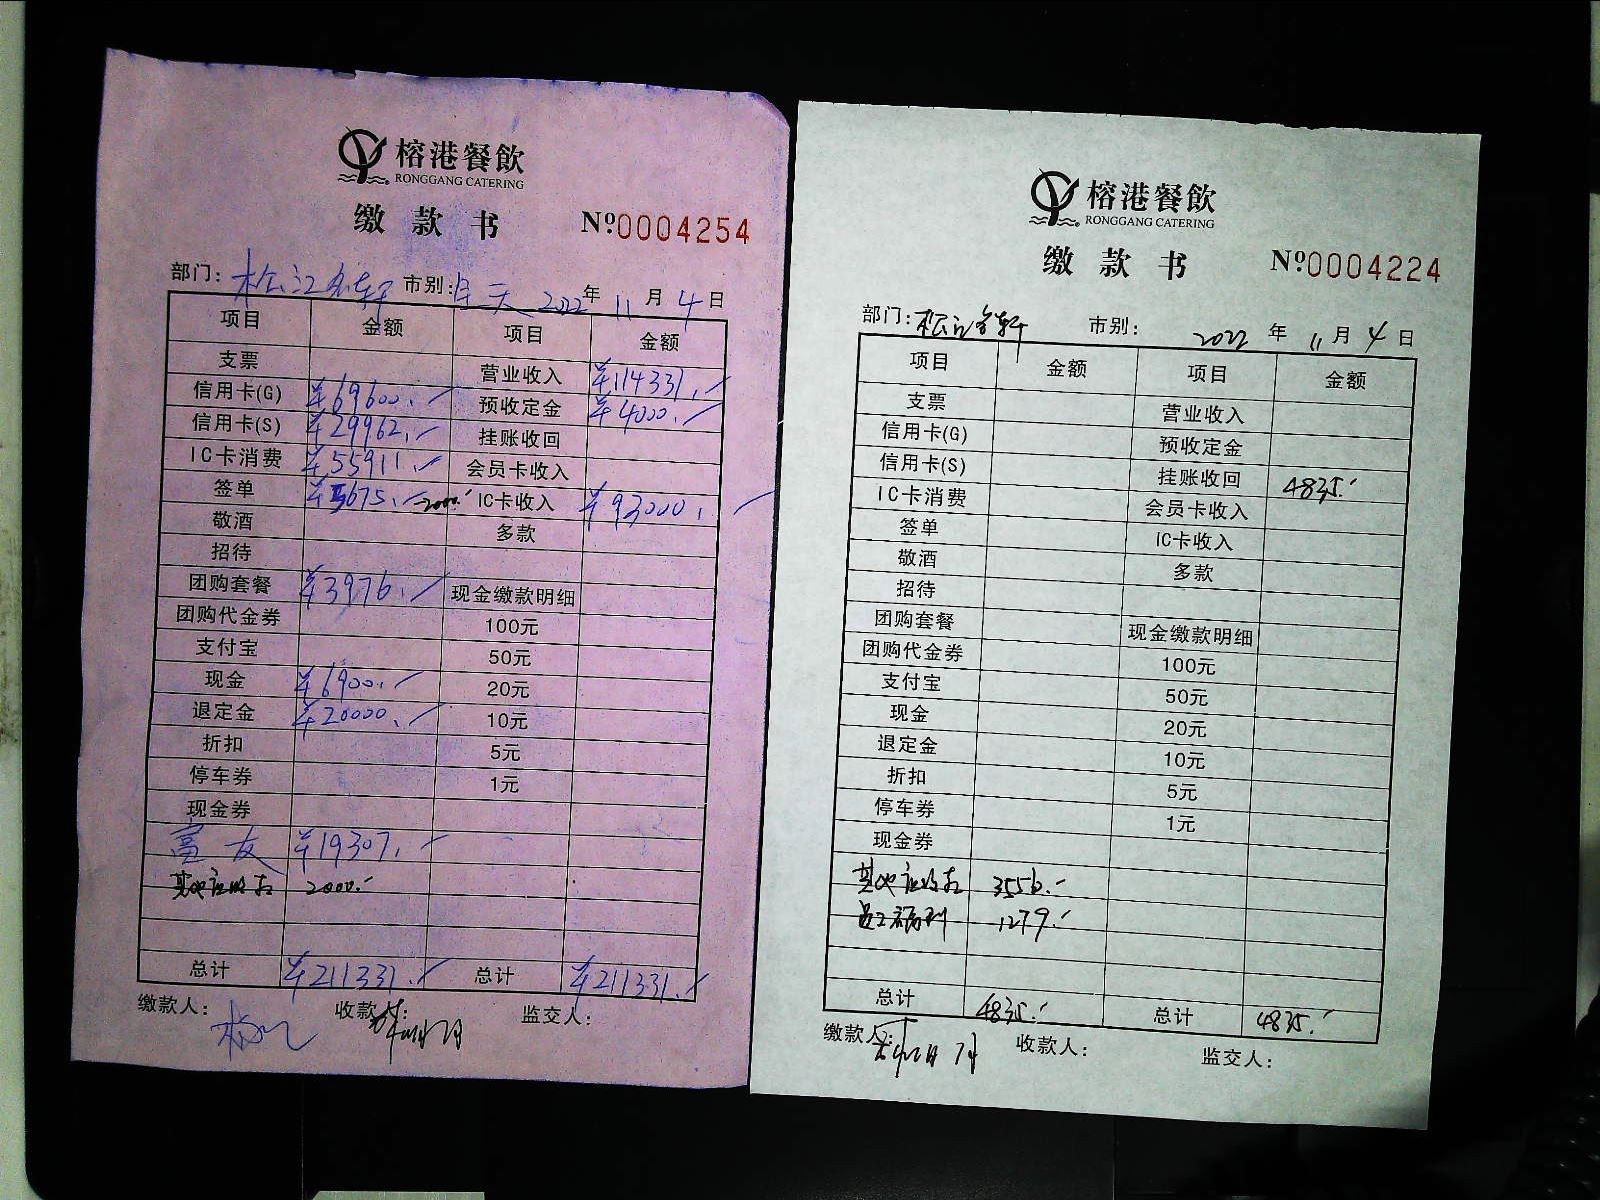 榕港餐飲
RONGGANG CATERING
缴款书 Nº0004254
部门: 松江名轩 市别: 全天 2022年 11月 4日
项目 金额 项目 金额
支票 营业收入 ¥114331.
信用卡(G) ¥69600. 预收定金 ¥4000.
信用卡(S) ¥29962. 挂账收回
IC卡消费 ¥55911. 会员卡收入
签单 ¥3675. 2000. IC卡收入 ¥93000.
敬酒 多款
招待
团购套餐 ¥3976. 现金缴款明细
团购代金券 100元
支付宝 50元
现金 ¥6900. 20元
退定金 ¥20000. 10元
折扣 5元
停车券 1元
现金券
富友 ¥19307.
其他应收款 2000.
总计 ¥211331. 总计 ¥211331.
缴款人: 收款人: 监交人:
榕港餐飲
RONGGANG CATERING
缴款书 Nº0004224
部门: 松江名轩 市别: 2022年 11月 4日
项目 金额 项目 金额
支票 营业收入
信用卡(G) 预收定金
信用卡(S) 挂账收回 4835.
IC卡消费 会员卡收入
签单 IC卡收入
敬酒 多款
招待
团购套餐 现金缴款明细
团购代金券 100元
支付宝 50元
现金 20元
退定金 10元
折扣 5元
停车券 1元
现金券
其他应收款 3556.
员工福利 1279.
总计 4835. 总计 4835.
缴款人: 收款人: 监交人: